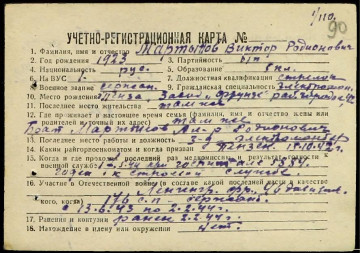 1/110.
90
УЧЕТНО-РЕГИСТРАЦИОННАЯ КАРТА №
1. Фамилия, имя и отчество Мартынов Виктор Родионович
2. Год рождения 1923 3. Партийность б/п
4. Национальность рус. 5. Образование 8 кл.
6. На ВУС 1. 7. Должностная квалификация стрелок
8. Военное звание сержант 9. Гражданская специальность электромон.
10. Место рождения Пенза, Завод Фрунзе
11. Последнее место жительства там же
12. Где проживает в настоящее время семья (фамилия, имя и отчество жены или
родителей и точный их адрес) там же
Брат Мартынов Родионович
13. Последнее место работы и должность
14. Каким райгорвоенкоматом и когда призван Пензен.
15. Когда и где проходил последний раз медкомиссию, результат годности к
военной службе госпитале
годен к строевой службе
16. Участие в Отечественной войне (в составе какой последней части и качестве
кого, когда) Ленингр. фр.
176 с.п. сержант
с 13.6.43 по 2.2.44г.
17. Ранения и контузии ранен 2.2.44г.
18. Нахождение в плену или окружении нет.